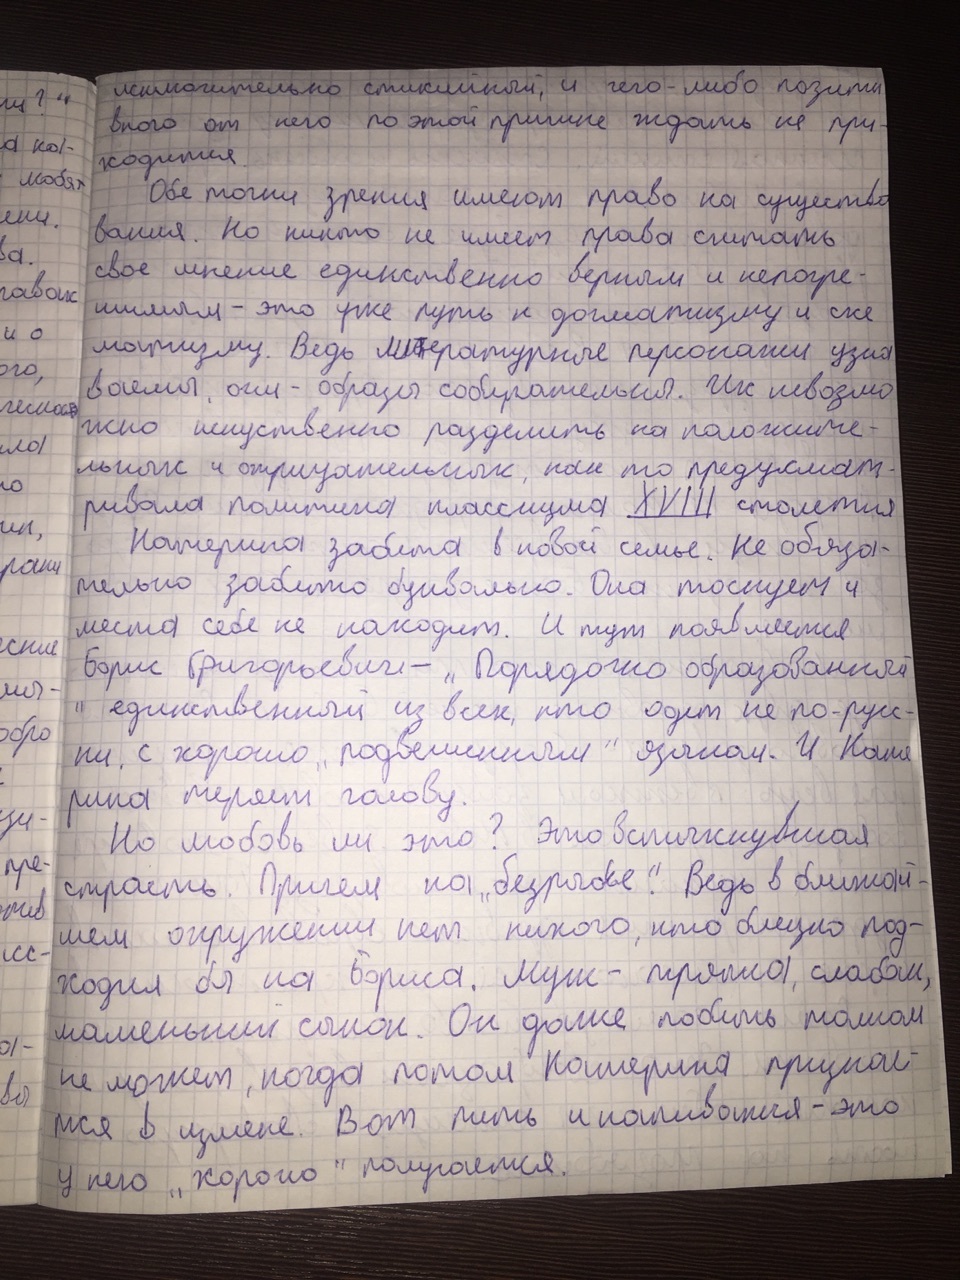 исключительно стихийный, и чего-либо позити
вного от него по этой причине ждать не при-
ходится.
Обе точки зрения имеют право на существо
вания. Но никто не имеет права считать
свое мнение единственно верным и непогре-
шимым - это уже путь к догматизму и схе
матизму. Ведь литературные персонажи узна
ваемы, они - образы собирательны. Их невозмо
жно искуственно разделить на положите-
льных и отрицательных, как то предусмат-
ривала политика классицизма XVIII столетия
Катерина забита в новой семье. Не обяза-
тельно забито буквально. Она тоскует и
места себе не находит. И тут появляется
Борис Григорьевич - „Порядочно образованный
" единственный из всех, кто одет не по-русс-
ки, с хорошо „подвешенным" языком. И Кате
рина теряет голову.
Но любовь ли это? Это вспыхнувшая
страсть. Причем на „безрыбье". Ведь в ближай-
шем окружении нет никого, кто близко под-
ходил бы на Бориса. Муж - тряпка, слабак,
маменькин сынок. Он даже побить толком
не может, когда потом Катерина признаё-
тся в измене. Вот пить и напиваться - это
у него „хорошо" получается.
ии?"
а ка-
любят
ени.
ва.
и о
ого,
ила
но
ин,
еские
мы-
обро
зи-
пре-
отив
сс-
а-
вы